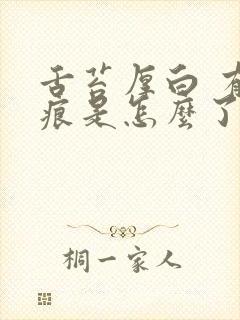 舌苔厚白 有
痕是怎麼了
桐一家人